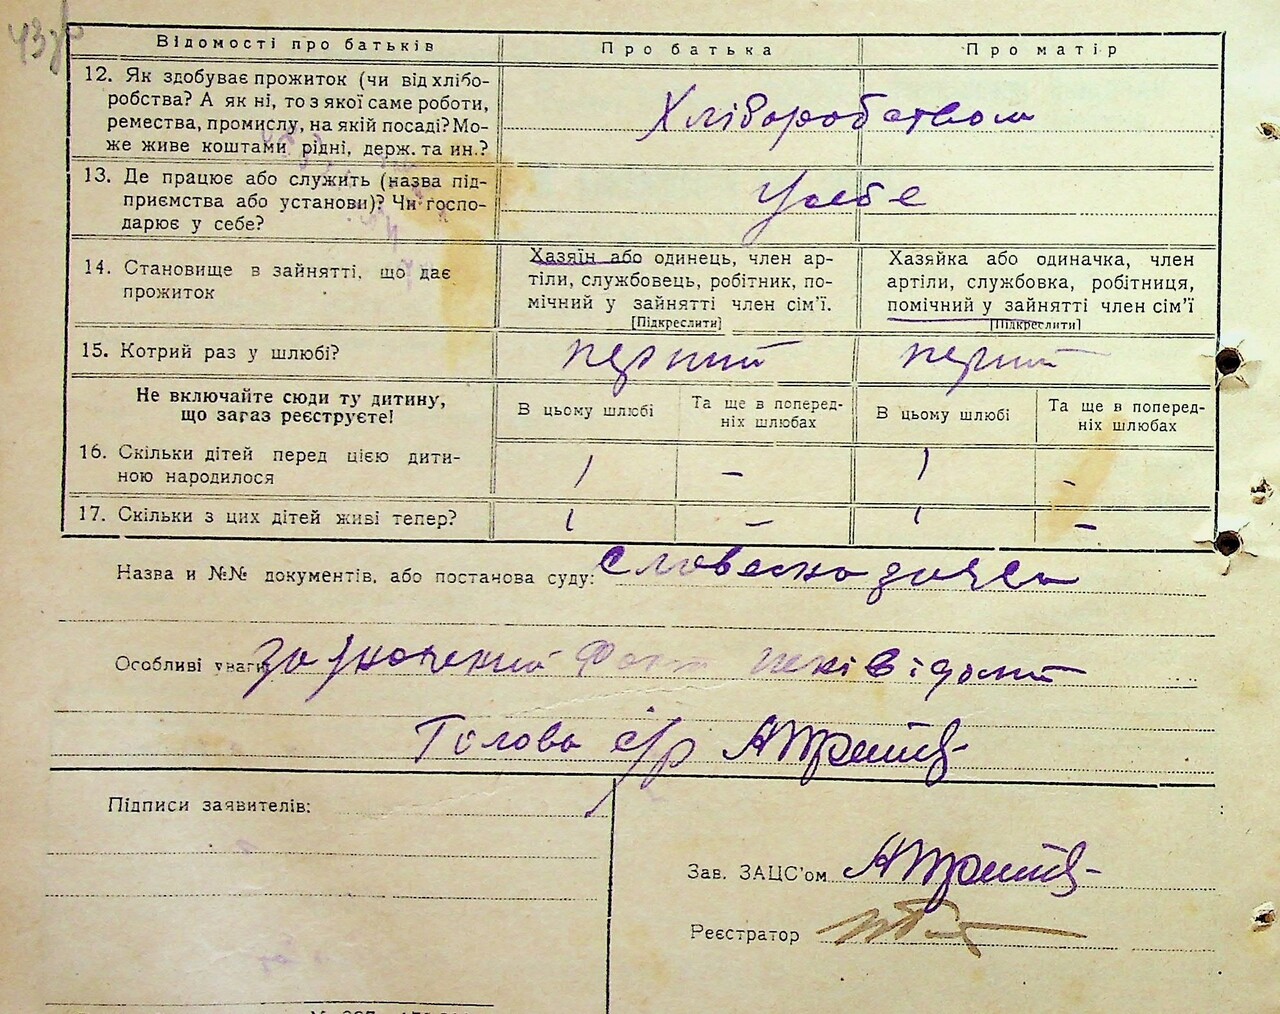 43зв
Відомості про батьків Про батька Про матір
12. Як здобуває прожиток (чи від хлібо-
робства? А як ні, то з якої саме роботи,
ремества, промислу, на якій посаді? Мо-
же живе коштами рідні, держ. та ин.?
Хліборобством
13. Де працює або служить (назва під-
приємства або установи)? Чи госпо-
дарює у себе?
У себе
14. Становище в зайнятті, що дає
прожиток
Хазяїн або одинець, член ар-
тілі, службовець, робітник, по-
мічний у зайнятті член сім'ї.
[Підкреслити]
Хазяйка або одиначка, член
артілі, службовка, робітниця,
помічний у зайнятті член сім'ї
[Підкреслити]
15. Котрий раз у шлюбі? перший перший
Не включайте сюди ту дитину,
що загаз реєструєте!
В цьому шлюбі
Та ще в поперед-
ніх шлюбах
В цьому шлюбі
Та ще в поперед-
ніх шлюбах
16. Скільки дітей перед цією дити-
ною народилося
1 – 1 -
17. Скільки з цих дітей живі тепер? 1 – 1 –
Назва и №№ документів, або постанова суду: Словесна заява
Особливі уваги зазначений факт мені відомий
Голова с/р
Підписи заявителів:
Зав. ЗАЦС'ом
Реєстратор